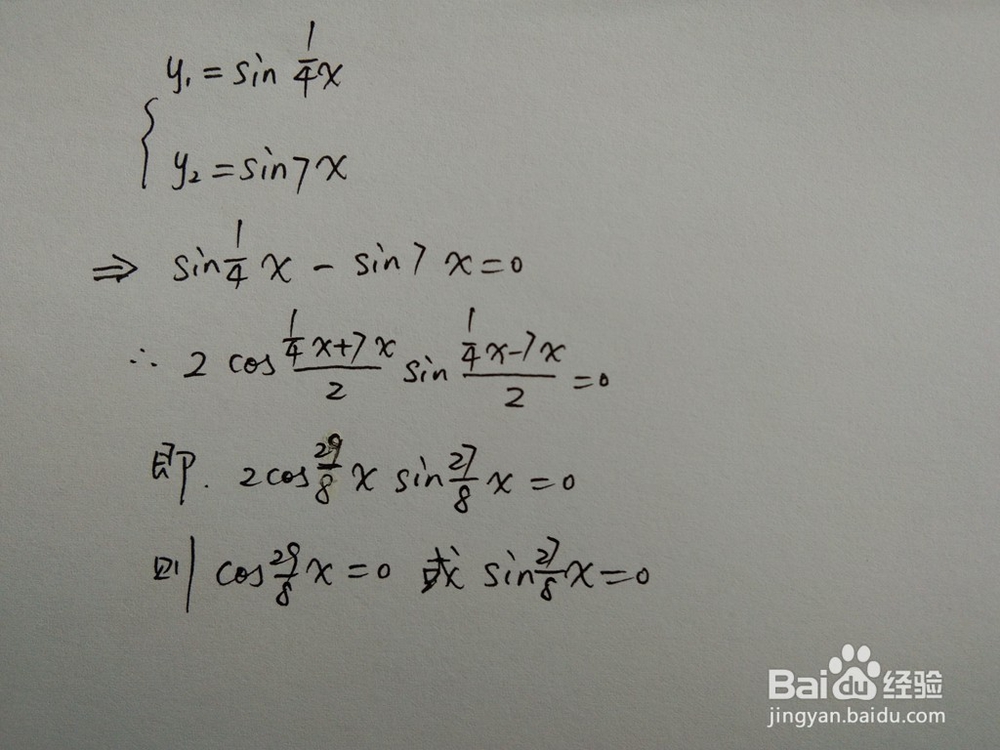 y₁ = sin 1/4 x
y₂ = sin7x
⇒ sin 1/4 x - sin7x = 0
∴ 2 cos (1/4 x+7x)/2 sin (1/4 x-7x)/2 = 0
即. 2cos 29/8 x sin 27/8 x = 0
则 cos 29/8 x = 0 或 sin 27/8 x = 0
Baidu经验
jingyan.baidu.com